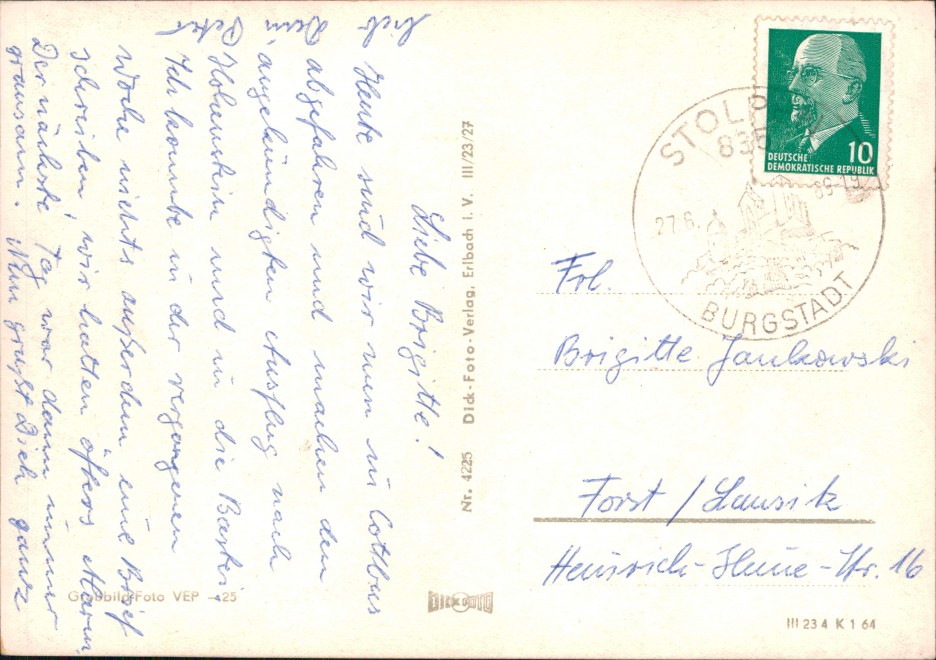 Liebe Brigitte!
Heute sind wir nun in Cottbus
abgefahren und machen den
angekündigten Ausflug nach
Hohenstein und in die Bastei
Ich konnte in der vergangenen
Woche nichts außerdem eine Brief
schreiben, wir hatten öfters Alarm,
Der nächste Tag war dann immer
grausam. Nun grüßt Dich ganz
lich
Dein
Peter
Nr. 4225 Dick-Foto-Verlag, Erlbach i. V. III/23/27
STOLP
835
27.6.
-19
BURGSTADT
10
DEUTSCHE
DEMOKRATISCHE REPUBLIK
Frl.
Brigitte Jankowski
Forst / Lausitz
Heinrich-Heine-Str. 16
Foto VEP
DICK FOTO
III 23 4 K 1 64